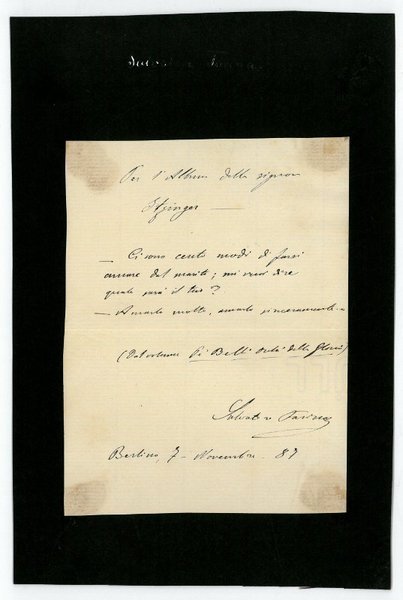 Salvatore Farina
Per l'Album della signora
Itzinger
— Ci sono cento modi di farsi
amare dal marito; mi vuoi dire
quale sarà il tuo?
— Amarlo molto, amarlo sinceramente
(Dal volume Pe' Belli Occhi della Gloria)
Salvatore Farina
Berlino, 7 - Novembre - 87